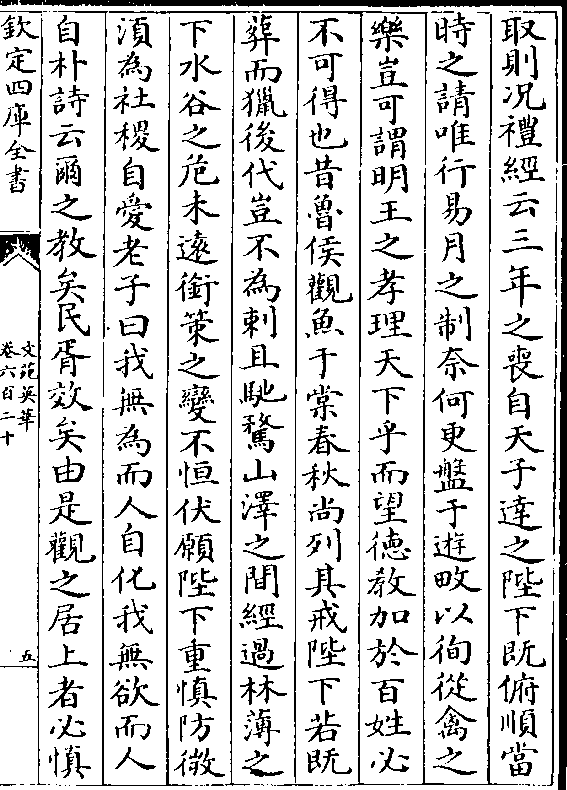 取則况禮經云三年之喪自天子達之陛下既俯順當
時之請唯行易月之制奈何更盤于遊畋以徇從禽之
樂豈可謂明王之孝理天下乎而望德教加於百姓必
不可得也昔魯侯觀魚于棠春秋尚列其戒陛下若既
葬而獵後代豈不為刺且馳騖山澤之間經過林薄之
下水谷之危未遠銜策之變不恒伏願陛下重慎防微
須為社稷自愛老子曰我無為而人自化我無欲而人
自朴詩云爾之教矣民胥效矣由是觀之居上者必慎
欽定四庫全書
文苑英華
卷六百二十
五